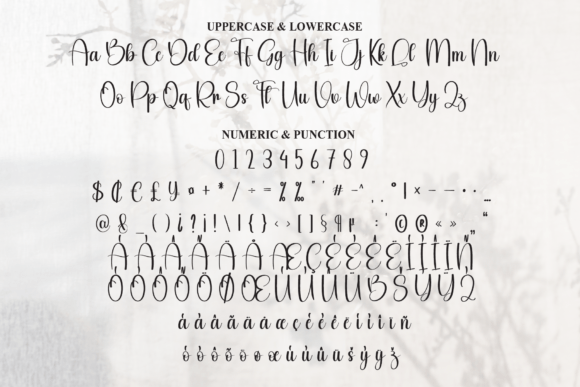 UPPERCASE & LOWERCASE
Aa Bb Cc Dd Ee Ff Gg Hh Ii Jj Kk Ll Mm Nn
Oo Pp Qq Rr Ss Tt Uu Vv Ww Xx Yy Zz
NUMERIC & PUNCTION
0 1 2 3 4 5 6 7 8 9
$ ₡ € £ ¥ ¤ + * / ÷ = % ‰ " ' # - ^ ‚ . ° | × – — · . …
@ & _ ( ) ¿ ? ¡ ! \ | { } ‹ › [ ] § ¶ : ' © ® « » " „
À Á Â Ã Ä Å Æ Ç È É Ê Ë Ì Í Î Ï Ñ
Ò Ó Ô Õ Ö Ø Œ Ù Ú Û Ü ß Š Ý Ÿ Ž
á à â ã ä å æ ç é è ê ë í ì î ï ñ
ó ò ô õ ö ø œ ú ù û ü š ý ÿ ž